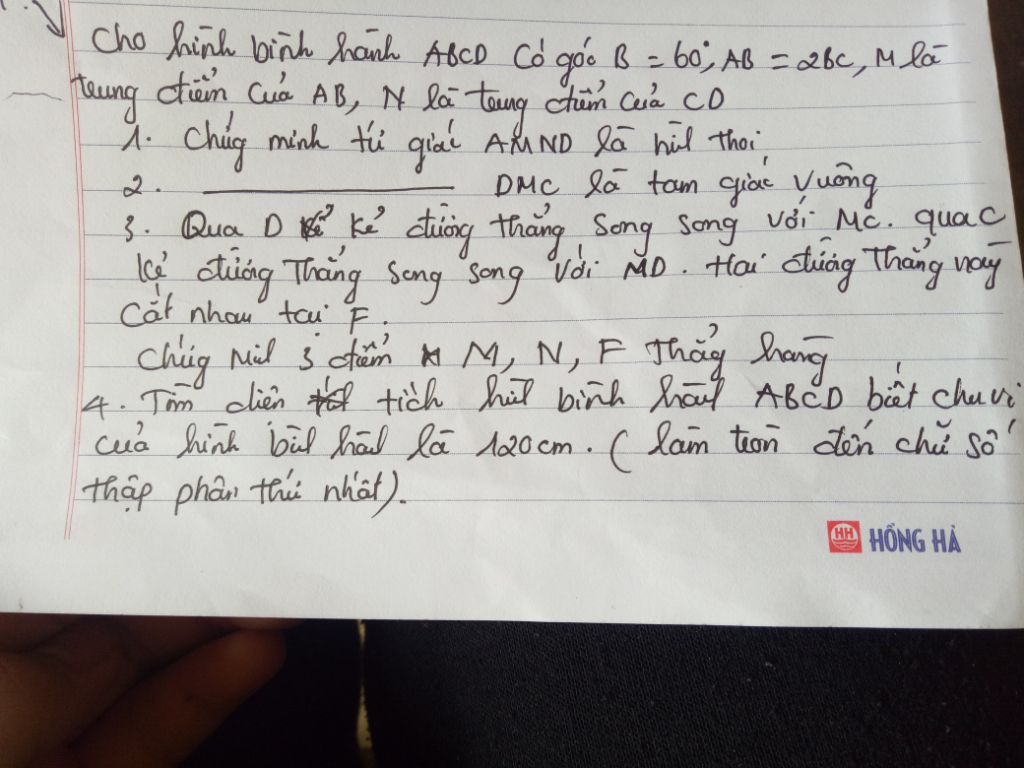 Cho hình bình hành ABCD Có góc B = 60°, AB = 2BC, M là
trung điểm Của AB, N là trung điểm của CD
1. Chứg minh tứ giác AMND là hìh thoi
2. ________ DMC là tam giác vuông
3. Qua D kẻ đường thẳng song song với MC. qua C
kẻ đường thẳng song song với MD. Hai đường thẳng này
Cắt nhau tại F.
Chứg Mih 3 điểm M, N, F Thẳg hàng
4. Tìm diện tích hìh bình hàh ABCD biết chu vi
của hình bìh hàh là 120cm. (làm tròn đến chữ số
thập phân thứ nhất).
HH HỒNG HÀ